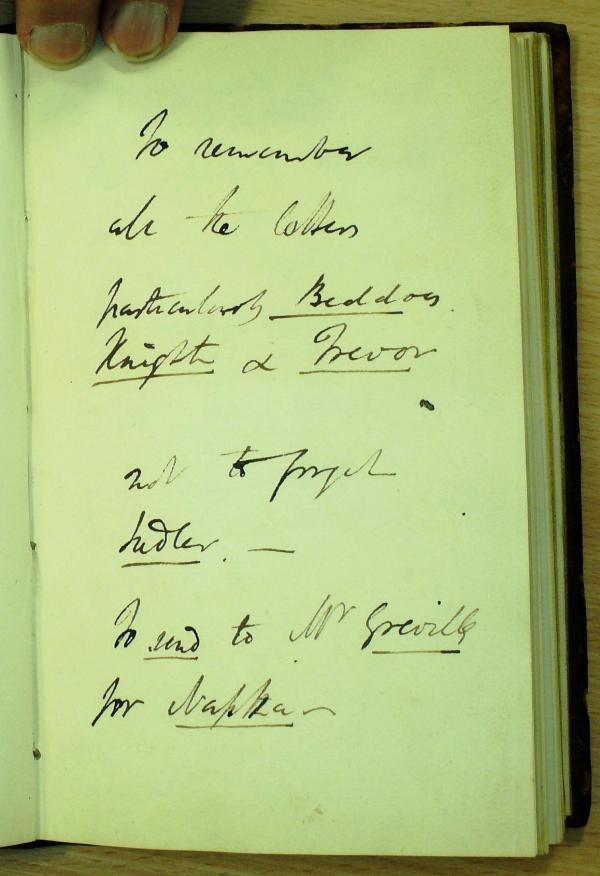 To remember
all the letters
particularly Beddoes
Knight & Trevor
not to forget
Sadler. —
To send to Mr Greville
for Naptha —